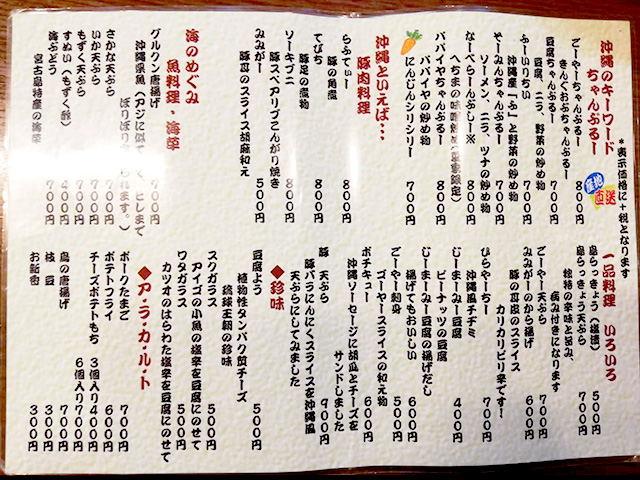 *表示価格に+税となります
沖縄のキーワード
ちゃんぷるー
産地
直送
ごーやーちゃんぷるー
きんぐおぶちゃんぷるー
800円
豆腐ちゃんぷるー
豆腐、ニラ、野菜の炒め物
700円
ふーいりちい
沖縄産「ふ」と野菜の炒め物
700円
そーみんちゃんぷるー
ソーメン、ニラ、ツナの炒め物
700円
なーべらーんぶしー※
へちまの味噌炒め
800円
パパイヤちゃんぷるー
パパイヤの炒め物
800円
にんじんシリシリー
700円
沖縄といえば…
豚肉料理
らふてぃー
豚の角煮
800円
てびち
豚足の煮物
800円
ソーキブニ
豚スペアリブこんがり焼き
800円
みみがー
豚耳のスライス胡麻和え
500円
海のめぐみ
魚料理・海草
グルクン唐揚げ
700円
沖縄県魚(アジに似て
ぼりぼり
さかな天ぷら
700円
いか天ぷら
700円
もずく天ぷら
700円
すぬい(もずく酢)
400円
海ぶどう
700円
宮古島特産の海草
一品料理 いろいろ
島らっきょう(塩漬)
500円
島らっきょう天ぷら
700円
独特の辛味と旨み、
病み付きになります
ごーやー天ぷら
700円
みみがーのから揚げ
600円
豚の耳皮のスライス
カリカリピリ辛です!
ひらやーちー
700円
沖縄風チヂミ
じーまーみー豆腐
400円
ピーナッツの豆腐
じーまーみー豆腐の揚げだし
600円
揚げてもおいしい
ごーやー刺身
500円
ゴーヤースライスの和え物
ポチキュー
600円
沖縄ソーセージに胡瓜とチーズを
サンドしました
豚 天ぷら
900円
豚バラにんにくスライスを沖縄風
天ぷらにしてみました
◆珍味
豆腐よう
500円
植物性タンパク質チーズ
琉球王朝の珍味
スクガラス
500円
アイゴの小魚の塩辛を豆腐にのせて
ワタガラス
500円
カツオのはらわた塩辛を豆腐にのせて
◆ア・ラ・カ・ル・ト
ポークたまご
700円
ポテトフライ
600円
チーズポテトもち 3個入り400円
6個入り700円
鳥の唐揚げ
700円
枝豆
300円
お新香
300円